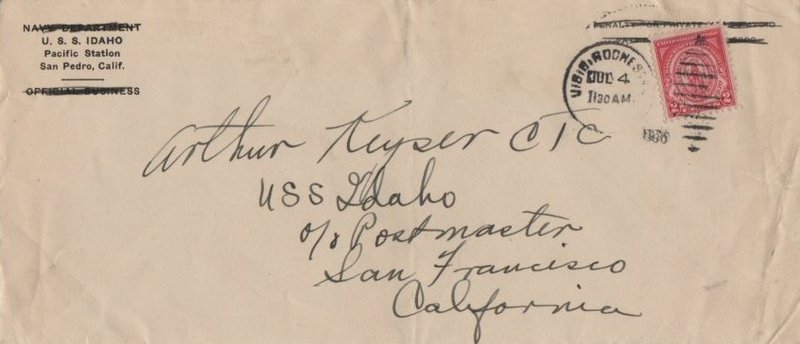 NAVY DEPARTMENT
U. S. S. IDAHO
Pacific Station
San Pedro, Calif.
OFFICIAL BUSINESS
PENALTY FOR PRIVATE
4
1130 AM
2
Arthur Keyser CTC
USS Idaho
c/o Postmaster
San Francisco
California